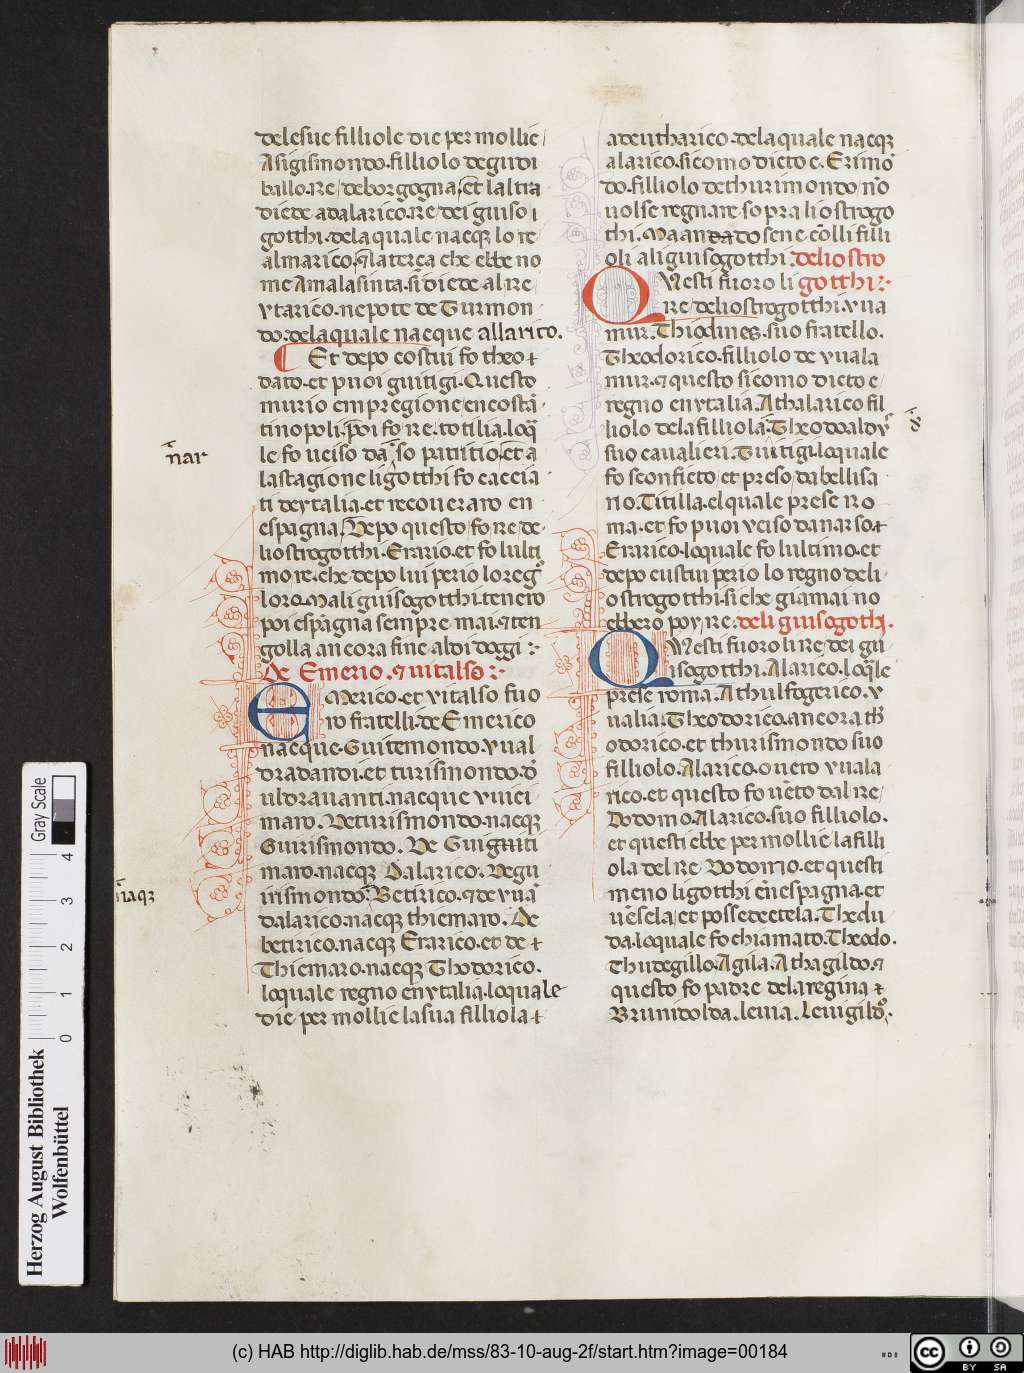 delesue filliole die per mollie
Asigismondo.filliolo de gudi
ballo.re.de borgogna.et laltra
diede adalarico.re dei guiso i
gotthi.dela quale nacqz lo re
almarico.⁊ laterça che ebbe no
me Amalasinta.si diede al re
vtarico.nepote de Gurmon
do.dela quale nacque allarico.
Et depo costui fo theo
dato.et puoi guitigi.Questo
murio em pregione encostã
tinopoli.poi fo re.totilia.loq̃
le fo uciso da so patritio.et a
la stagione li gotthi fo caccia
ti de ytalia.et recoueraro en
espagna.Depo questo fo re de
li ostrogotthi.Erario.et fo lulti
mo re.che depo lui perio lo regº
loro.Mali guisogotthi.tenero
poi espagna sempre mai.⁊ ten
golla ancora fine aldi doggi :~
De Emerio.⁊ uitalso :~
EMerico.et vitalso fuo
ro fratelli.de Emerico
nacque.Guitemondo.vual
dradandi.et turismondo.dº
uldrauanti.nacque vuici
maro.Deturismondo.nacqz
Guirismondo. De Guigtuiti
maro.nacqz Dalarico.Degu
irismondo.Betirico.⁊ de vuã
dalarico.nacqz thiemaro. De
betirico.nacqz Erarico.et de
Thiemaro.nacqz Thodorico.
loquale regno en ytalia.loquale
die per mollie la sua filliola
adeutharico.dela quale nacqz
alarico.sicomo dicto e.Erimõ
do.filliolo de thurimondo nõ
uolse regnare sopra li ostrogo
thi.Ma andato sene cõlli filli
oli ali guisogotthi deli ostro
QVesti fuoro li gotthi :~
re deli ostrogotthi.vua
mur.Thiodmes.suo fratello.
Theodorico.filliolo de vuala
mur.⁊ questo sicomo dicto e
regno en ytalia.Athalarico fil
liolo dela filliola.Theodoaldvs
suo caualieri.Guitigi.loquale
fo sconficto et preso da bellisa
rio.Titilla.elquale prese ro
ma.et fo puoi vciso da narso
Erarico.loquale fo lultimo.et
depo custui perio lo regno deli
ostrogotthi.si che giamai no
ebbero poy re.deli guisogothi.
QVesti fuoro li re dei gu
isogotthi.Alarico.loq̃le
prese roma.Athulfo.gerico.v
ualia.Theodorico.ancora th
odorico.et thurismondo suo
filliolo.Alarico.ouero vuala
rico.et questo fo uẽto dal re
Dodomo.Alarico.suo filliolo.
et questi ebbe per mollie la filli
ola del re Dodomo.et questi
meno li gotthi en espagna.et
uẽsela et possedectela.Thedu
da.loquale fo chiamato.Theodo.
Thudegillo.Agila.Athagildo.⁊
questo fo padre dela regina
Brunidolda.leuia.Leuigildº.
nar
nacqz
Gray Scale
4
3
2
1
0
Herzog August Bibliothek
Wolfenbüttel
(c) HAB http://diglib.hab.de/mss/83-10-aug-2f/start.htm?image=00184
cc
BY SA